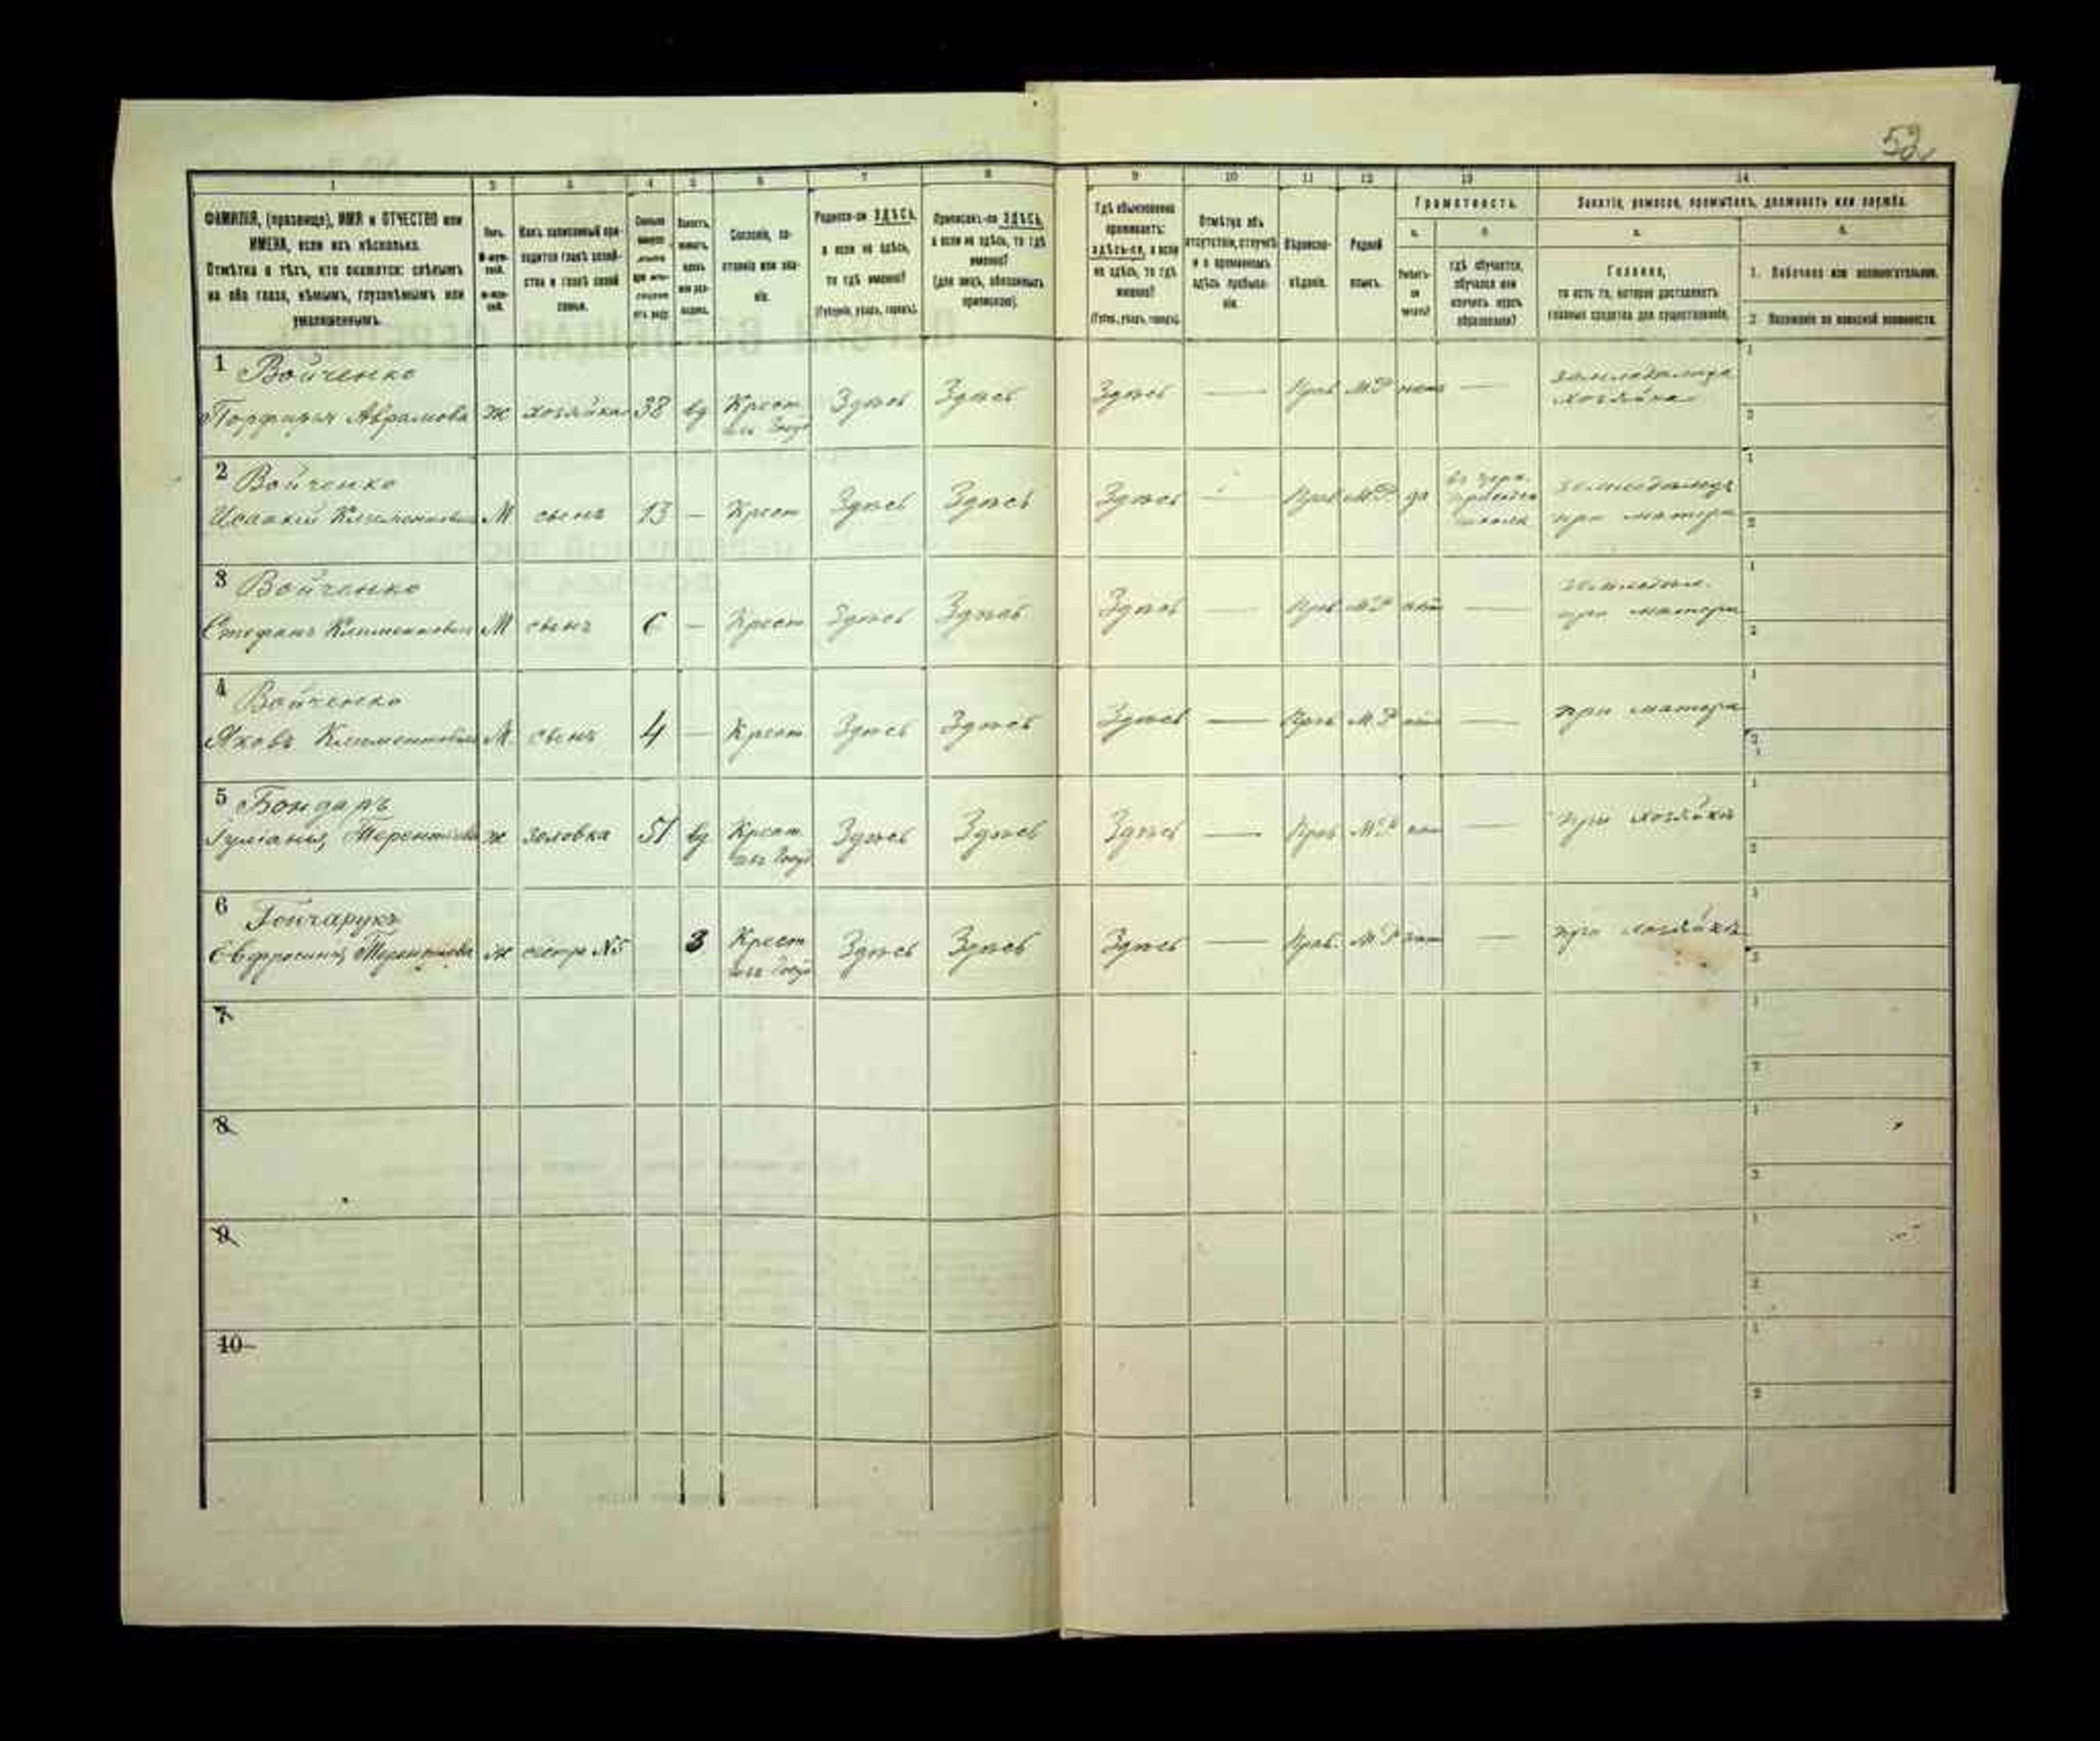 52
1 2 3 4 5 6 7 8 9 10 11 12 13 14
ФАМИЛІЯ, (прозвище), ИМЯ и ОТЧЕСТВО или
ИМЕНА, если ихъ нѣсколько.
Отмѣтка о тѣхъ, кто окажется: слѣпымъ
на оба глаза, нѣмымъ, глухонѣмымъ или
умалишеннымъ.
Полъ.
Какъ записанный при-
ходится главѣ хозяй-
ства и главѣ своей
семьи.
Сословіе, со-
стояніе или зва-
ніе.
Родился-ли ЗДѢСЬ,
а если не здѣсь,
то гдѣ именно?
(Губернія, уѣздъ, городъ).
Приписанъ-ли ЗДѢСЬ,
а если не здѣсь, то гдѣ
именно?
(для лицъ, обязанныхъ
припискою).
Гдѣ обыкновенно
проживаетъ:
здѣсь-ли, а если
не здѣсь, то гдѣ
именно?
(Губ., уѣздъ, городъ).
Отмѣтка объ
отсутствіи, отлучкѣ
и о временномъ
здѣсь пребыва-
ніи.
Вѣроиспо-
вѣданіе.
Родной
языкъ.
Грамотность.
а. б.
Умѣетъ-
ли
читать?
гдѣ обучается,
обучался или
кончилъ курсъ
образованія?
Занятіе, ремесло, промыселъ, должность или служба.
а. б.
Главное,
то есть то, которое доставляетъ
главныя средства для существованія.
1. Побочное или вспомогательное.
2. Положеніе по воинской повинности.
1 Войченко
Порфирія Аврамова ж хозяйка 38 вд Крест Здѣсь Здѣсь Здѣсь — Прав М.Р нѣтъ —
хозяйка
2 Войченко
Исаакій Климентовичъ М сынъ 13 — Крест Здѣсь Здѣсь Здѣсь — Прав М.Р да
школѣ
при матери
3 Войченко
Стефанъ Климентовичъ М сынъ 6 — Крест Здѣсь Здѣсь Здѣсь — Прав М.Р нѣтъ —
при матери
4 Войченко
Яковъ Климентовичъ М сынъ 4 — Крест Здѣсь Здѣсь Здѣсь — Прав М.Р нѣтъ — при матери
5 Бондарь
Терентіева ж золовка 51 вд Крест Здѣсь Здѣсь Здѣсь — Прав М.Р нѣтъ — при хозяйкѣ
6 Гончарукъ
Евфросинія Терентіева ж сестра №5 З Крест Здѣсь Здѣсь Здѣсь — Прав М.Р нѣтъ — при хозяйкѣ
7
8
9
10